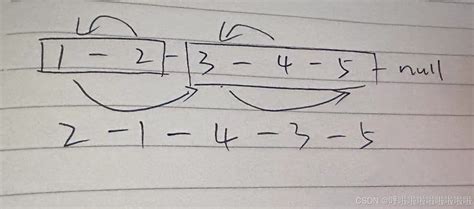 1 - 2 - 3 - 4 - 5 - null
2 - 1 - 4 - 3 - 5